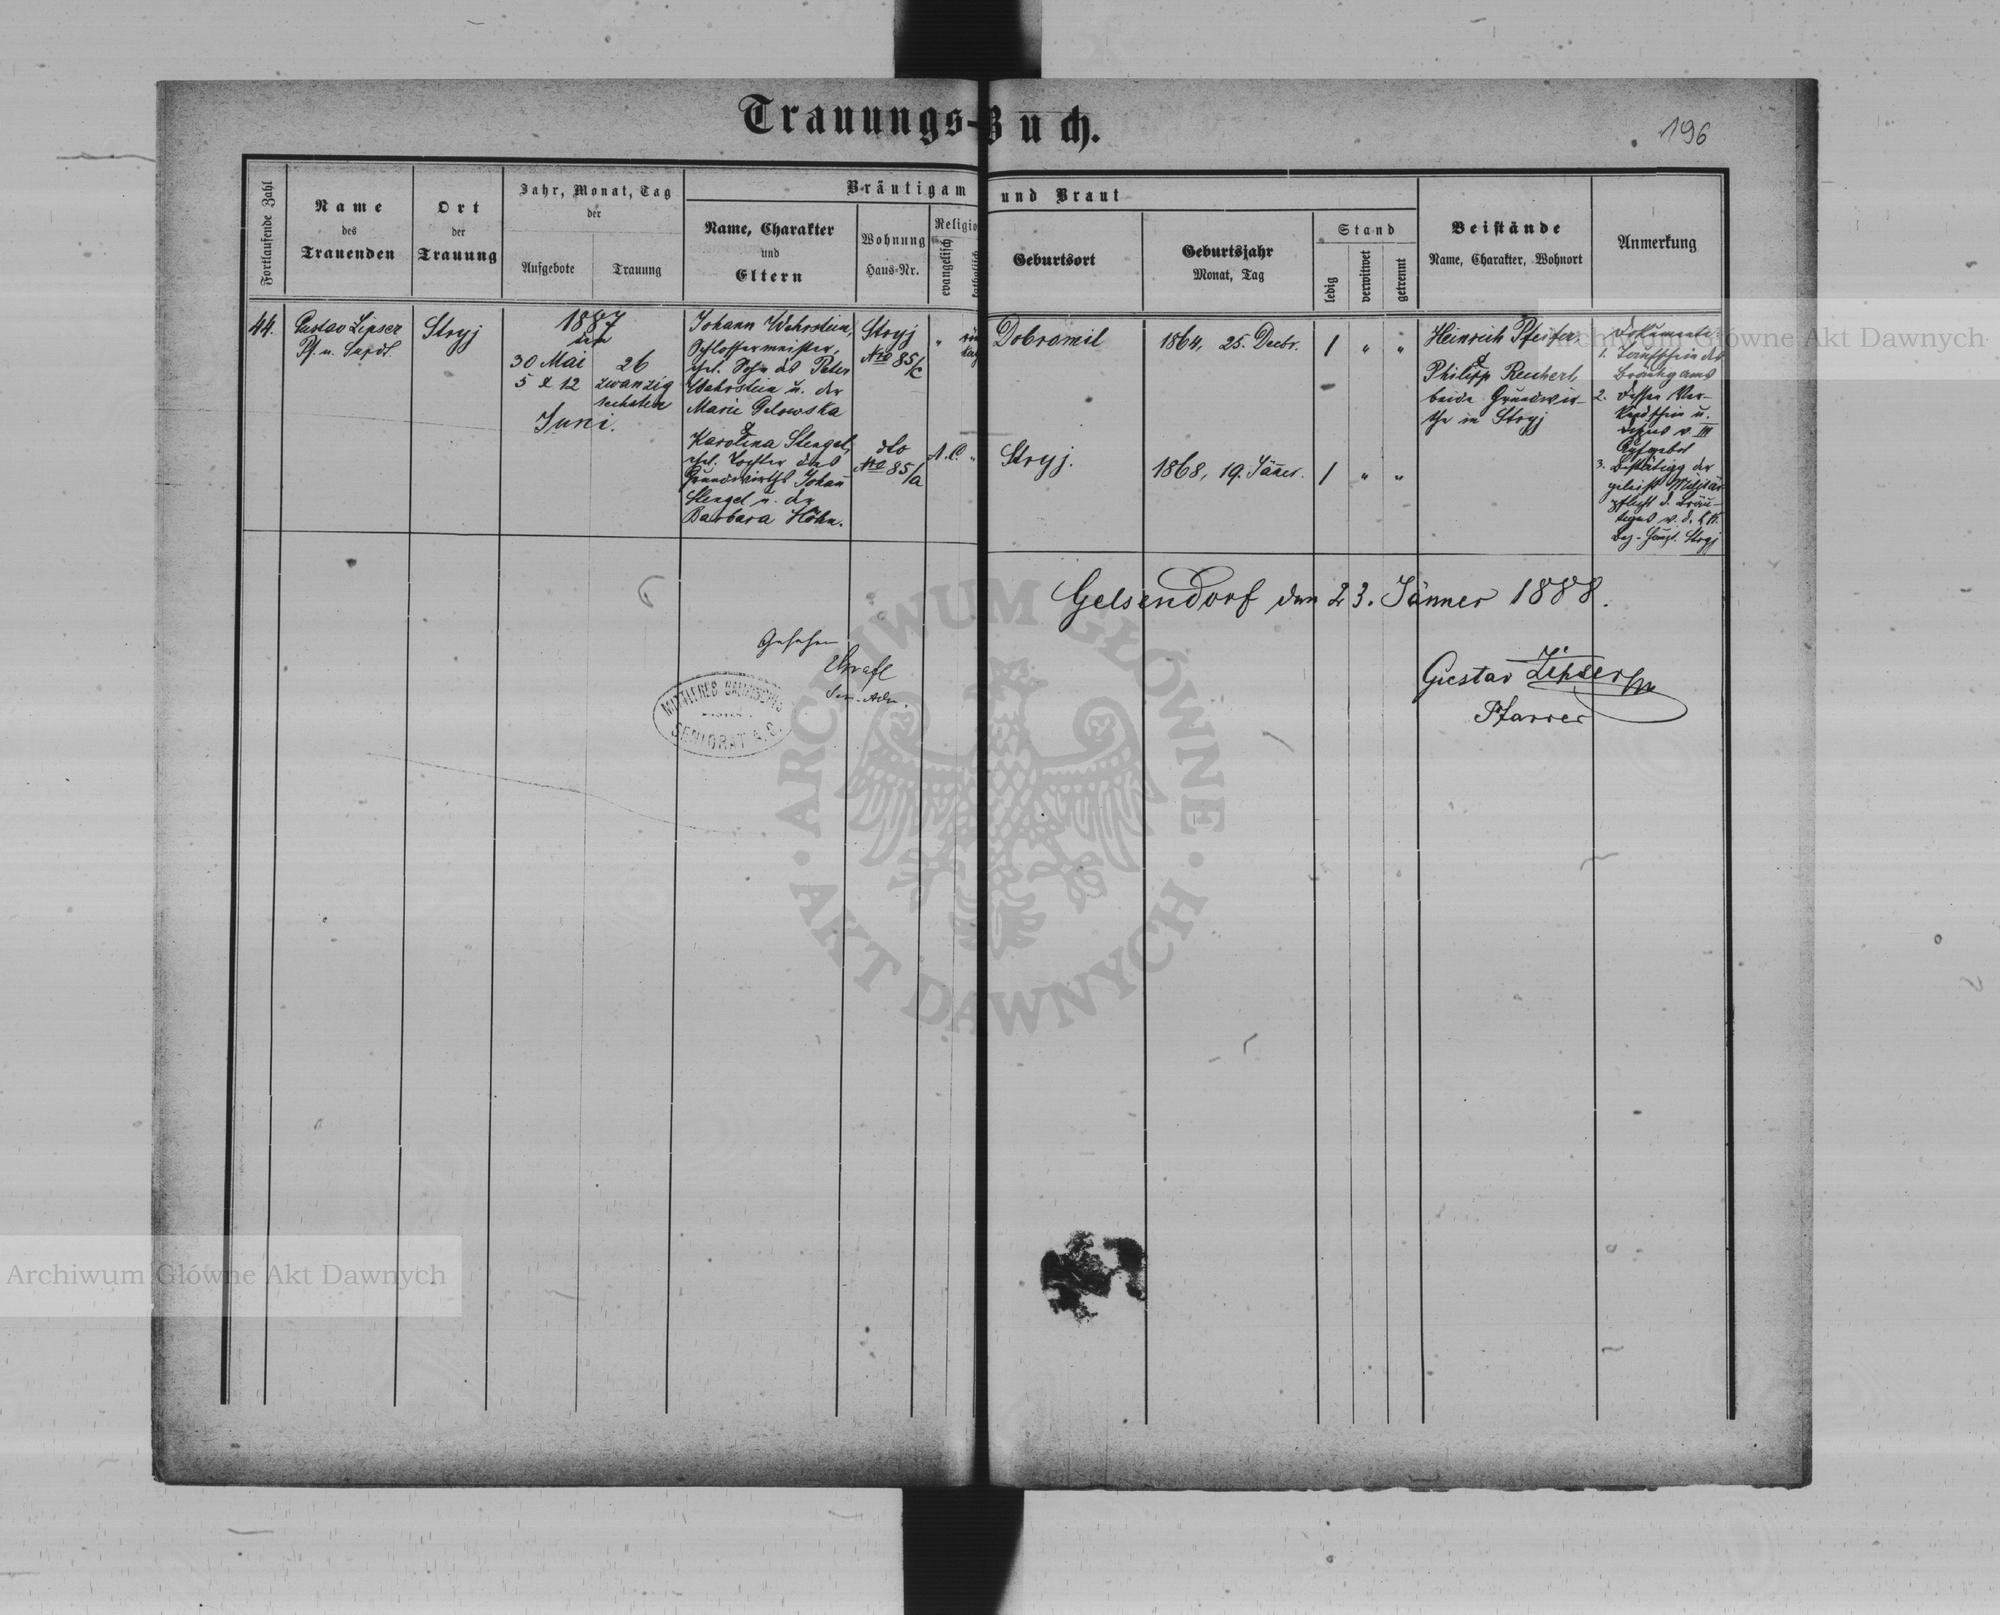 Trauungs-Buch.
196
Fortlaufende Zahl
Name
des
Trauenden
Ort
der
Trauung
Jahr, Monat, Tag
der
Aufgebote
Trauung
Bräutigam und Braut
Name, Charakter
und
Eltern
Wohnung
Haus-Nr.
Religio
evangelisch
katholisch
Geburtsort
Geburtsjahr
Monat, Tag
Stand
ledig
verwitwet
getrennt
Beistände
Name, Charakter, Wohnort
Anmerkung
44.
Gustav Zipser
Pf. u.
Stryj
1887
den
30 Mai
5 & 12
Juni.
26
zwanzig
sechsten
Johann Wehrstein,
Schlossermeister,
ehel. Sohn des Peter
Wehrstein u. der
Marie
&
Karolina Stengel,
ehel. Tochter des
Grundwirths Johan̅
Stengel u. der
Barbara Höhn.
Stryj
Nro 85/c
dto
Nro 85/a
„
A. C. „
Dobromil
Stryj.
1864, 25. Decbr.
1868, 19. Jän̅er.
/ „ „
/ „ „
Heinrich Pfeifer
&
Philipp Reichert,
beide Grundwir-
the in Stryj
Dokumente:
1. Taufschein des
Bräutigams
2. Dessen Ver-
kündschein u.
v. III
Aufgebot
3. Bestätigg der
geleist. Militär
pflicht d. Bräu-
tigams v. d. k. k.
Bez.-Haupt. Stryj
Gelsendorf den 23. Jänner 1888.
Gustav Zipser
Pfarrer
Gesehen
Sen. Adm.
MITTLERES GALIZISCHES
SENIORAT A. C.
ARCHIWUM GŁÓWNE
AKT DAWNYCH
Archiwum Główne Akt Dawnych
Archiwum Główne Akt Dawnych